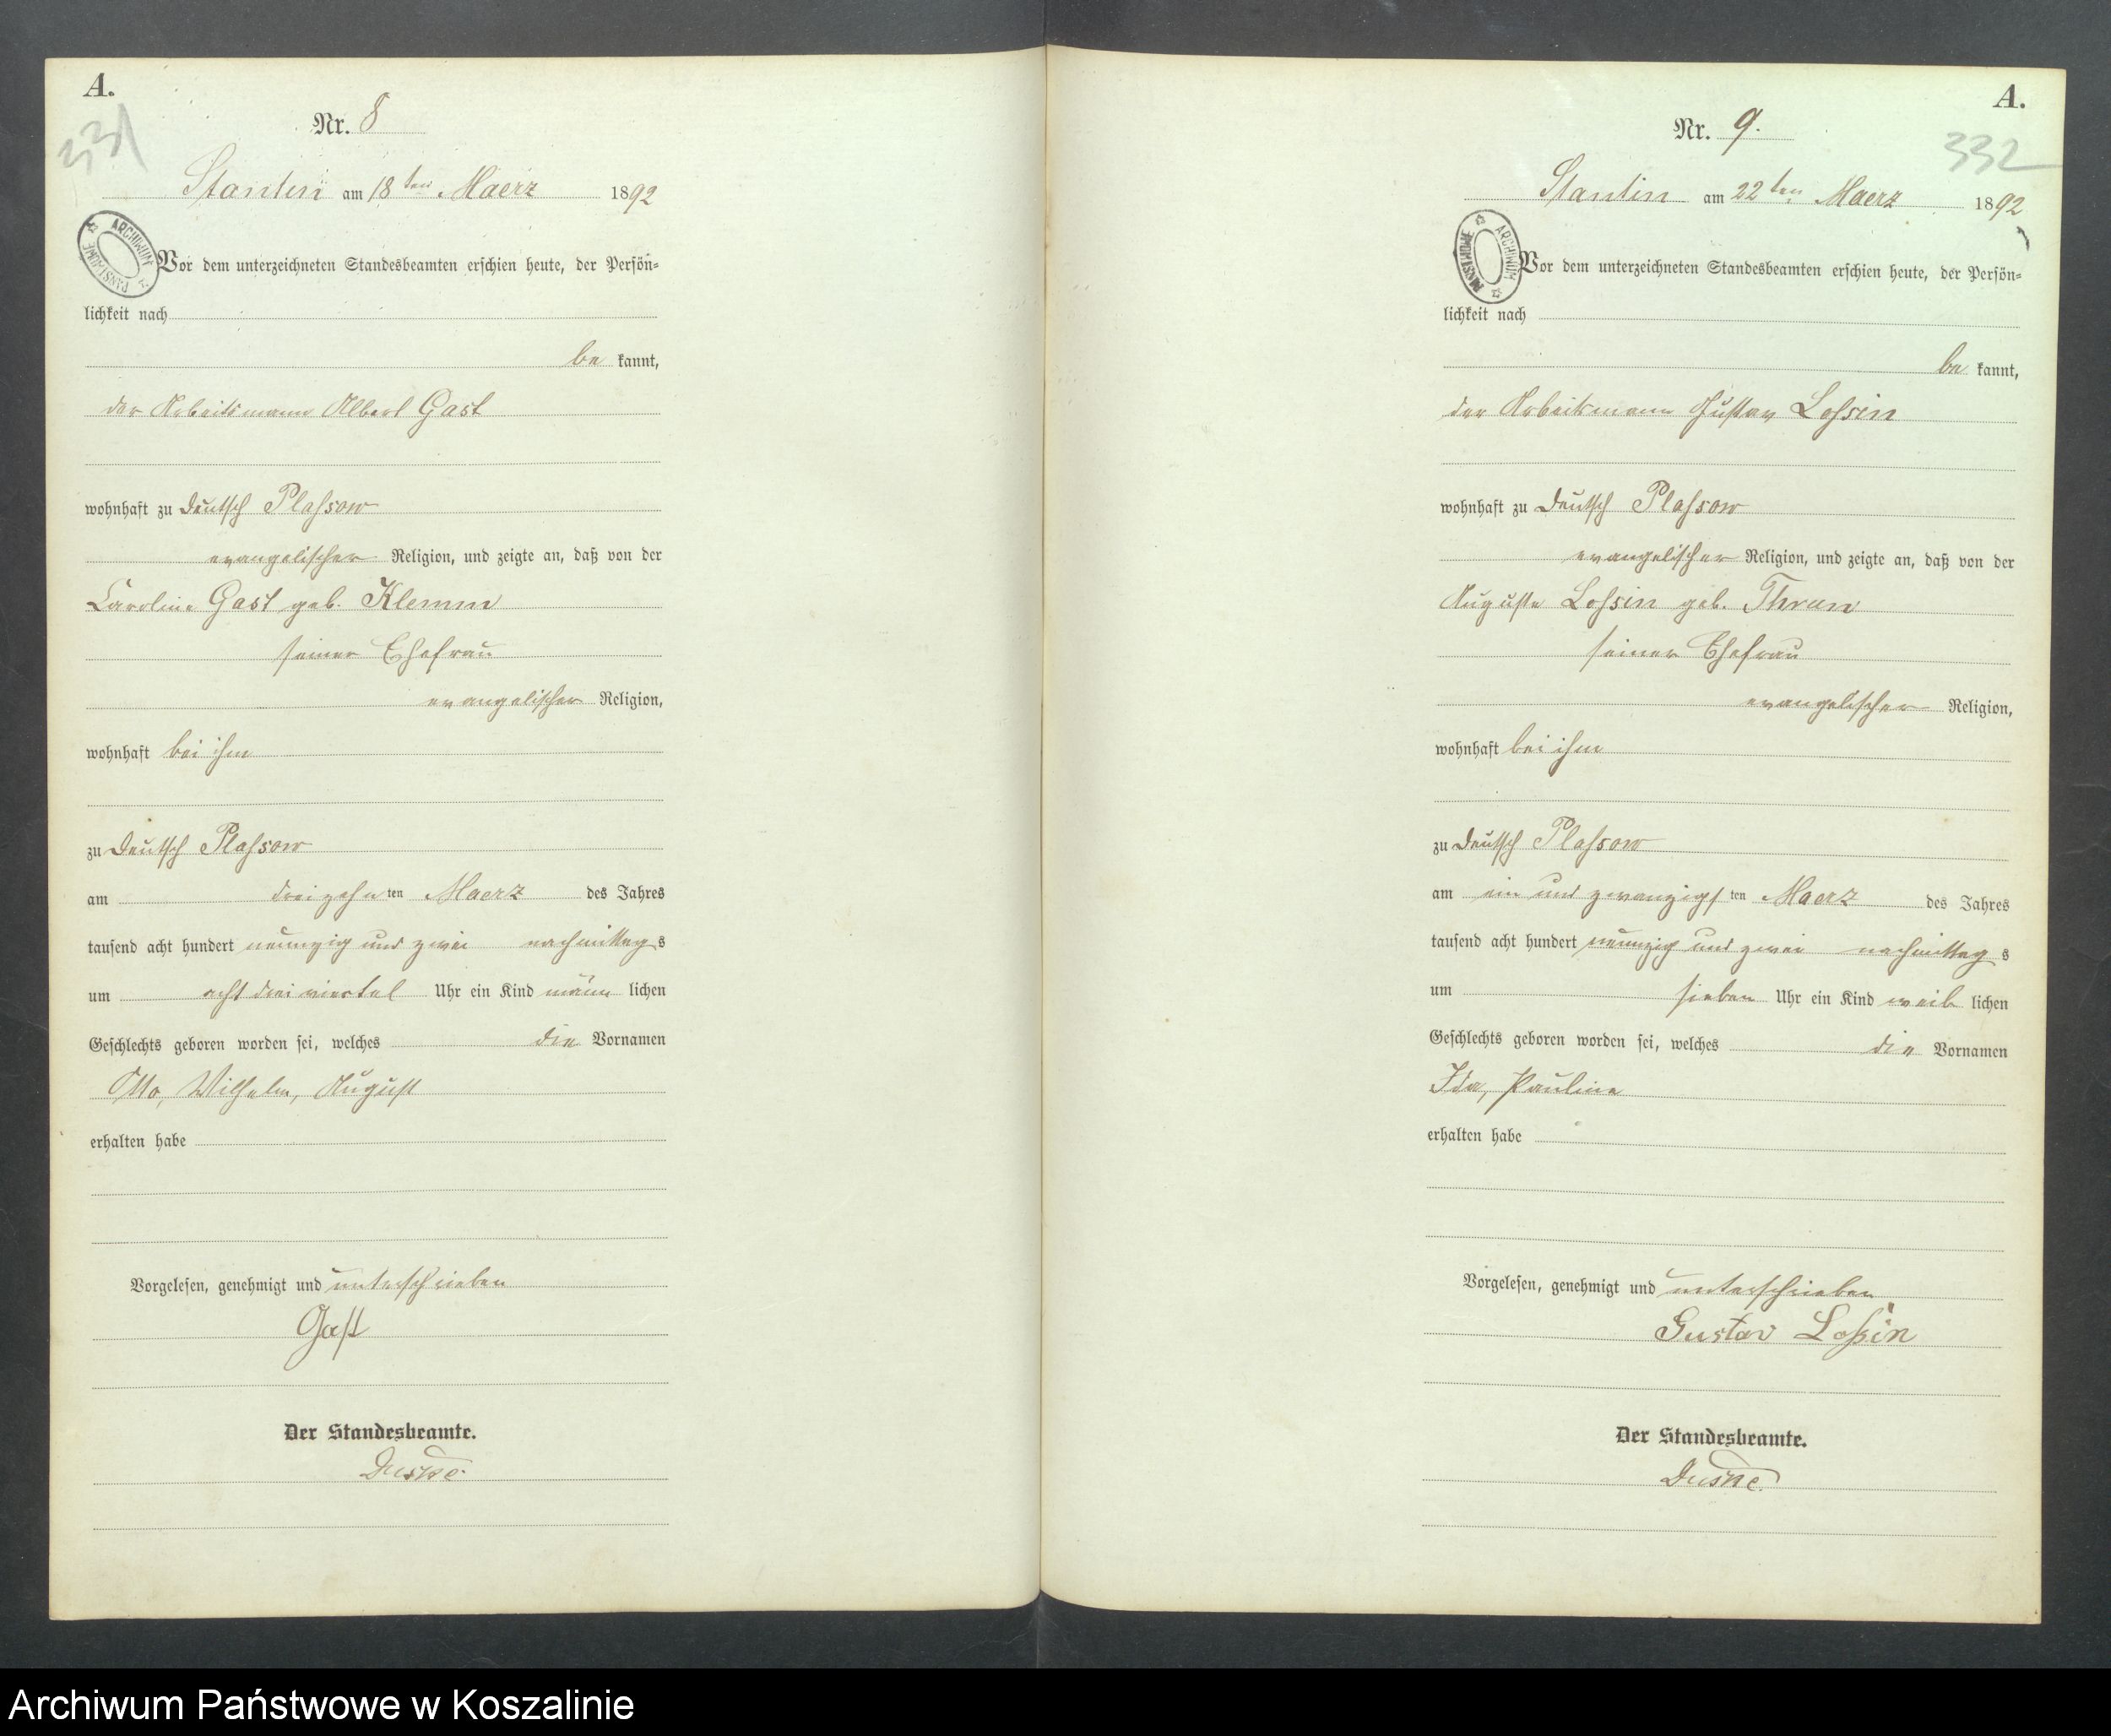 A.
331
Nr. 8
Stantin am 18ten Maerz 1892
ARCHIWUM PAŃSTWOWE
Vor dem unterzeichneten Standesbeamten erschien heute, der Persön-
lichkeit nach
be kannt,
der Arbeitsmann Albert Gast
wohnhaft zu Deutsch Plassow
evangelischer Religion, und zeigte an, daß von der
Caroline Gast geb. Klemm
seiner Ehefrau
evangelischer Religion,
wohnhaft bei ihm
zu Deutsch Plassow
am dreizehn ten Maerz des Jahres
tausend acht hundert neunzig und zwei nachmittag s
um acht dreiviertel Uhr ein Kind männ lichen
Geschlechts geboren worden sei, welches die Vornamen
Otto, Wilhelm, August
erhalten habe
Vorgelesen, genehmigt und unterschrieben
Gast
Der Standesbeamte.
A.
332
Nr. 9.
Stantin am 22ten Maerz 1892
ARCHIWUM PAŃSTWOWE
Vor dem unterzeichneten Standesbeamten erschien heute, der Persön-
lichkeit nach
be kannt,
der Arbeitsmann Gustav Lossin
wohnhaft zu Deutsch Plassow
evangelischer Religion, und zeigte an, daß von der
Auguste Lossin geb. Thrun
seiner Ehefrau
evangelischer Religion,
wohnhaft bei ihm
zu Deutsch Plassow
am ein und zwanzigs ten Maerz des Jahres
tausend acht hundert neunzig und zwei nachmittag s
um sieben Uhr ein Kind weib lichen
Geschlechts geboren worden sei, welches die Vornamen
Ida, Pauline
erhalten habe
Vorgelesen, genehmigt und unterschrieben
Gustav Loßin
Der Standesbeamte.
Archiwum Państwowe w Koszalinie